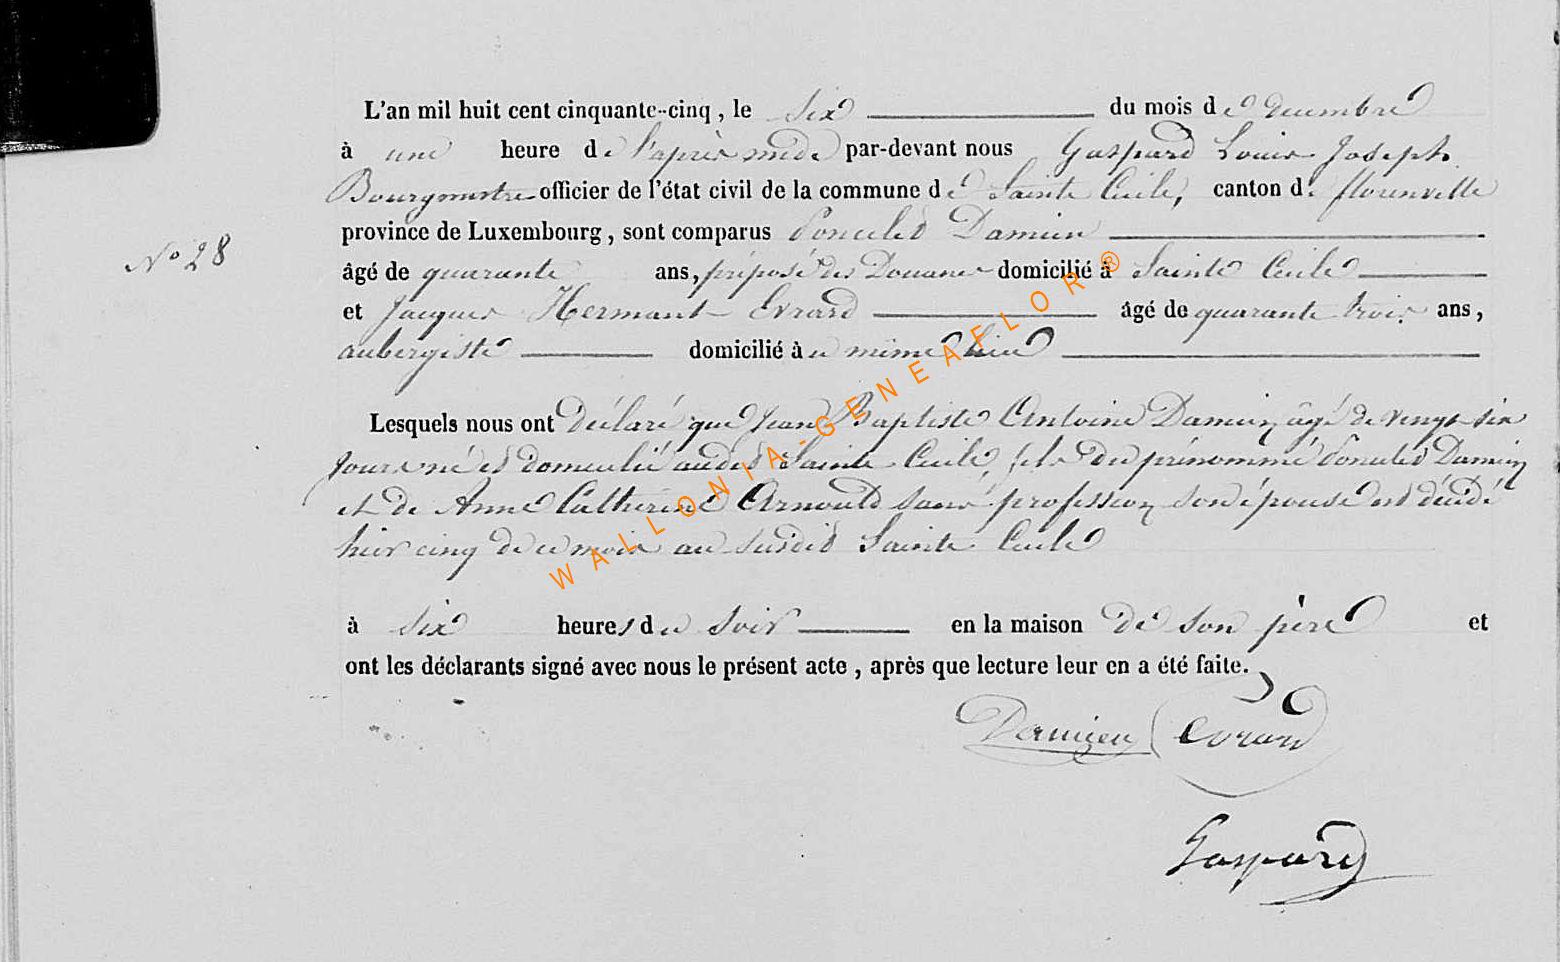 L'an mil huit cent cinquante-cinq, le six du mois de décembre
à une heure de l'après midi par-devant nous Gaspard Louis Joseph
Bourgmestre officier de l'état civil de la commune de Sainte Cécile, canton de florenville
province de Luxembourg, sont comparus Poncelet Damien
N° 28
âgé de quarante ans, préposé des Douanes domicilié à Sainte Cécile
et Jacques Hermant Evrard âgé de quarante trois ans,
aubergiste domicilié à ce même lieu
Lesquels nous ont déclaré que Jean Baptiste Antoine Damien âgé de vingt six
jours né et domicilié audit Sainte Cécile, fils du prénommé Poncelet Damien
et de Anne Catherine Arnould sans profession son épouse est décédé
hier cinq de ce mois au susdit Sainte Cécile
à six heures du soir en la maison de son père et
ont les déclarants signé avec nous le présent acte, après que lecture leur en a été faite.
Damien Evrard
Gaspard
WALLONIA-GENEAFLOR®